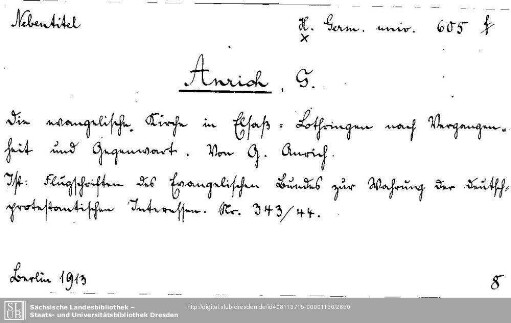 Nebentitel
H. Germ. univ. 605 f
x
Anrich, G.
Die evangelische Kirche in Elsaß-Lothringen nach Vergangen-
heit und Gegenwart. Von G. Anrich.
Ist: Flugschriften des Evangelischen Bundes zur Wahrung der deutsch-
protestantischen Interessen. Nr. 343/44.
Berlin 1913
8
Sächsische Landesbibliothek –
Staats- und Universitätsbibliothek Dresden